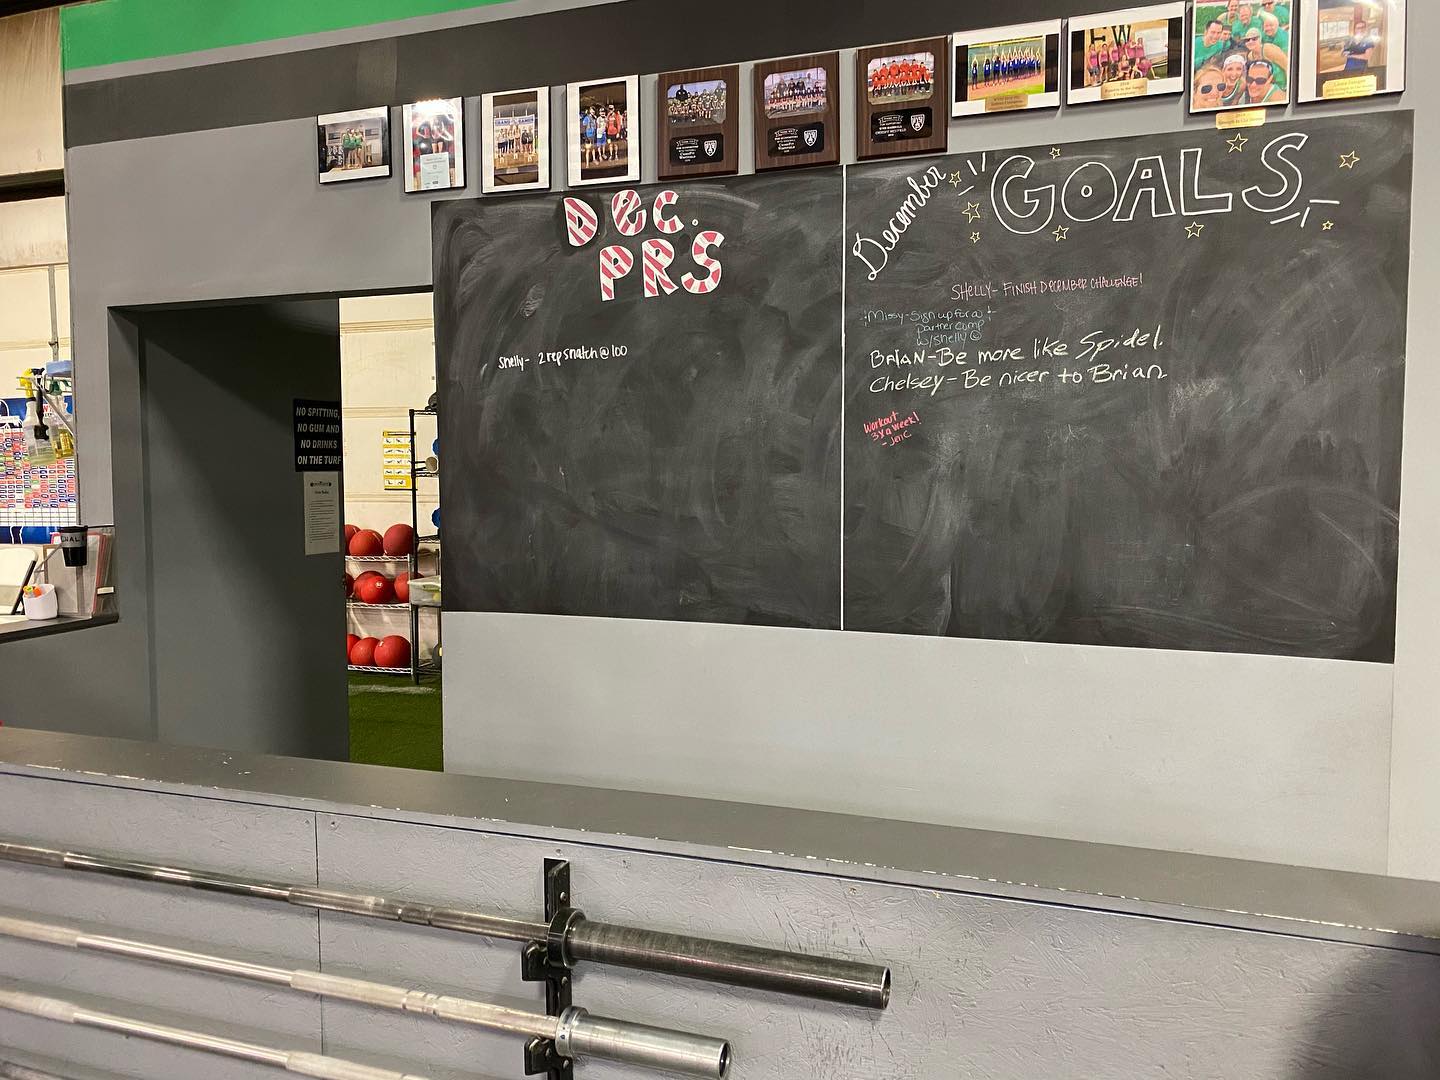 Dec.
PRS
Shelly- 2 rep snatch @ 100
December GOALS
SHELLY- FINISH DECEMBER CHALLENGE!
!Missy-Sign up for a !
partner comp
w/shelly ☺
BRIAN-Be more like Spidel.
Chelsey-Be nicer to Brian
Workout
3x a week!
-Jen C
NO SPITTING,
NO GUM AND
NO DRINKS
ON THE TURF